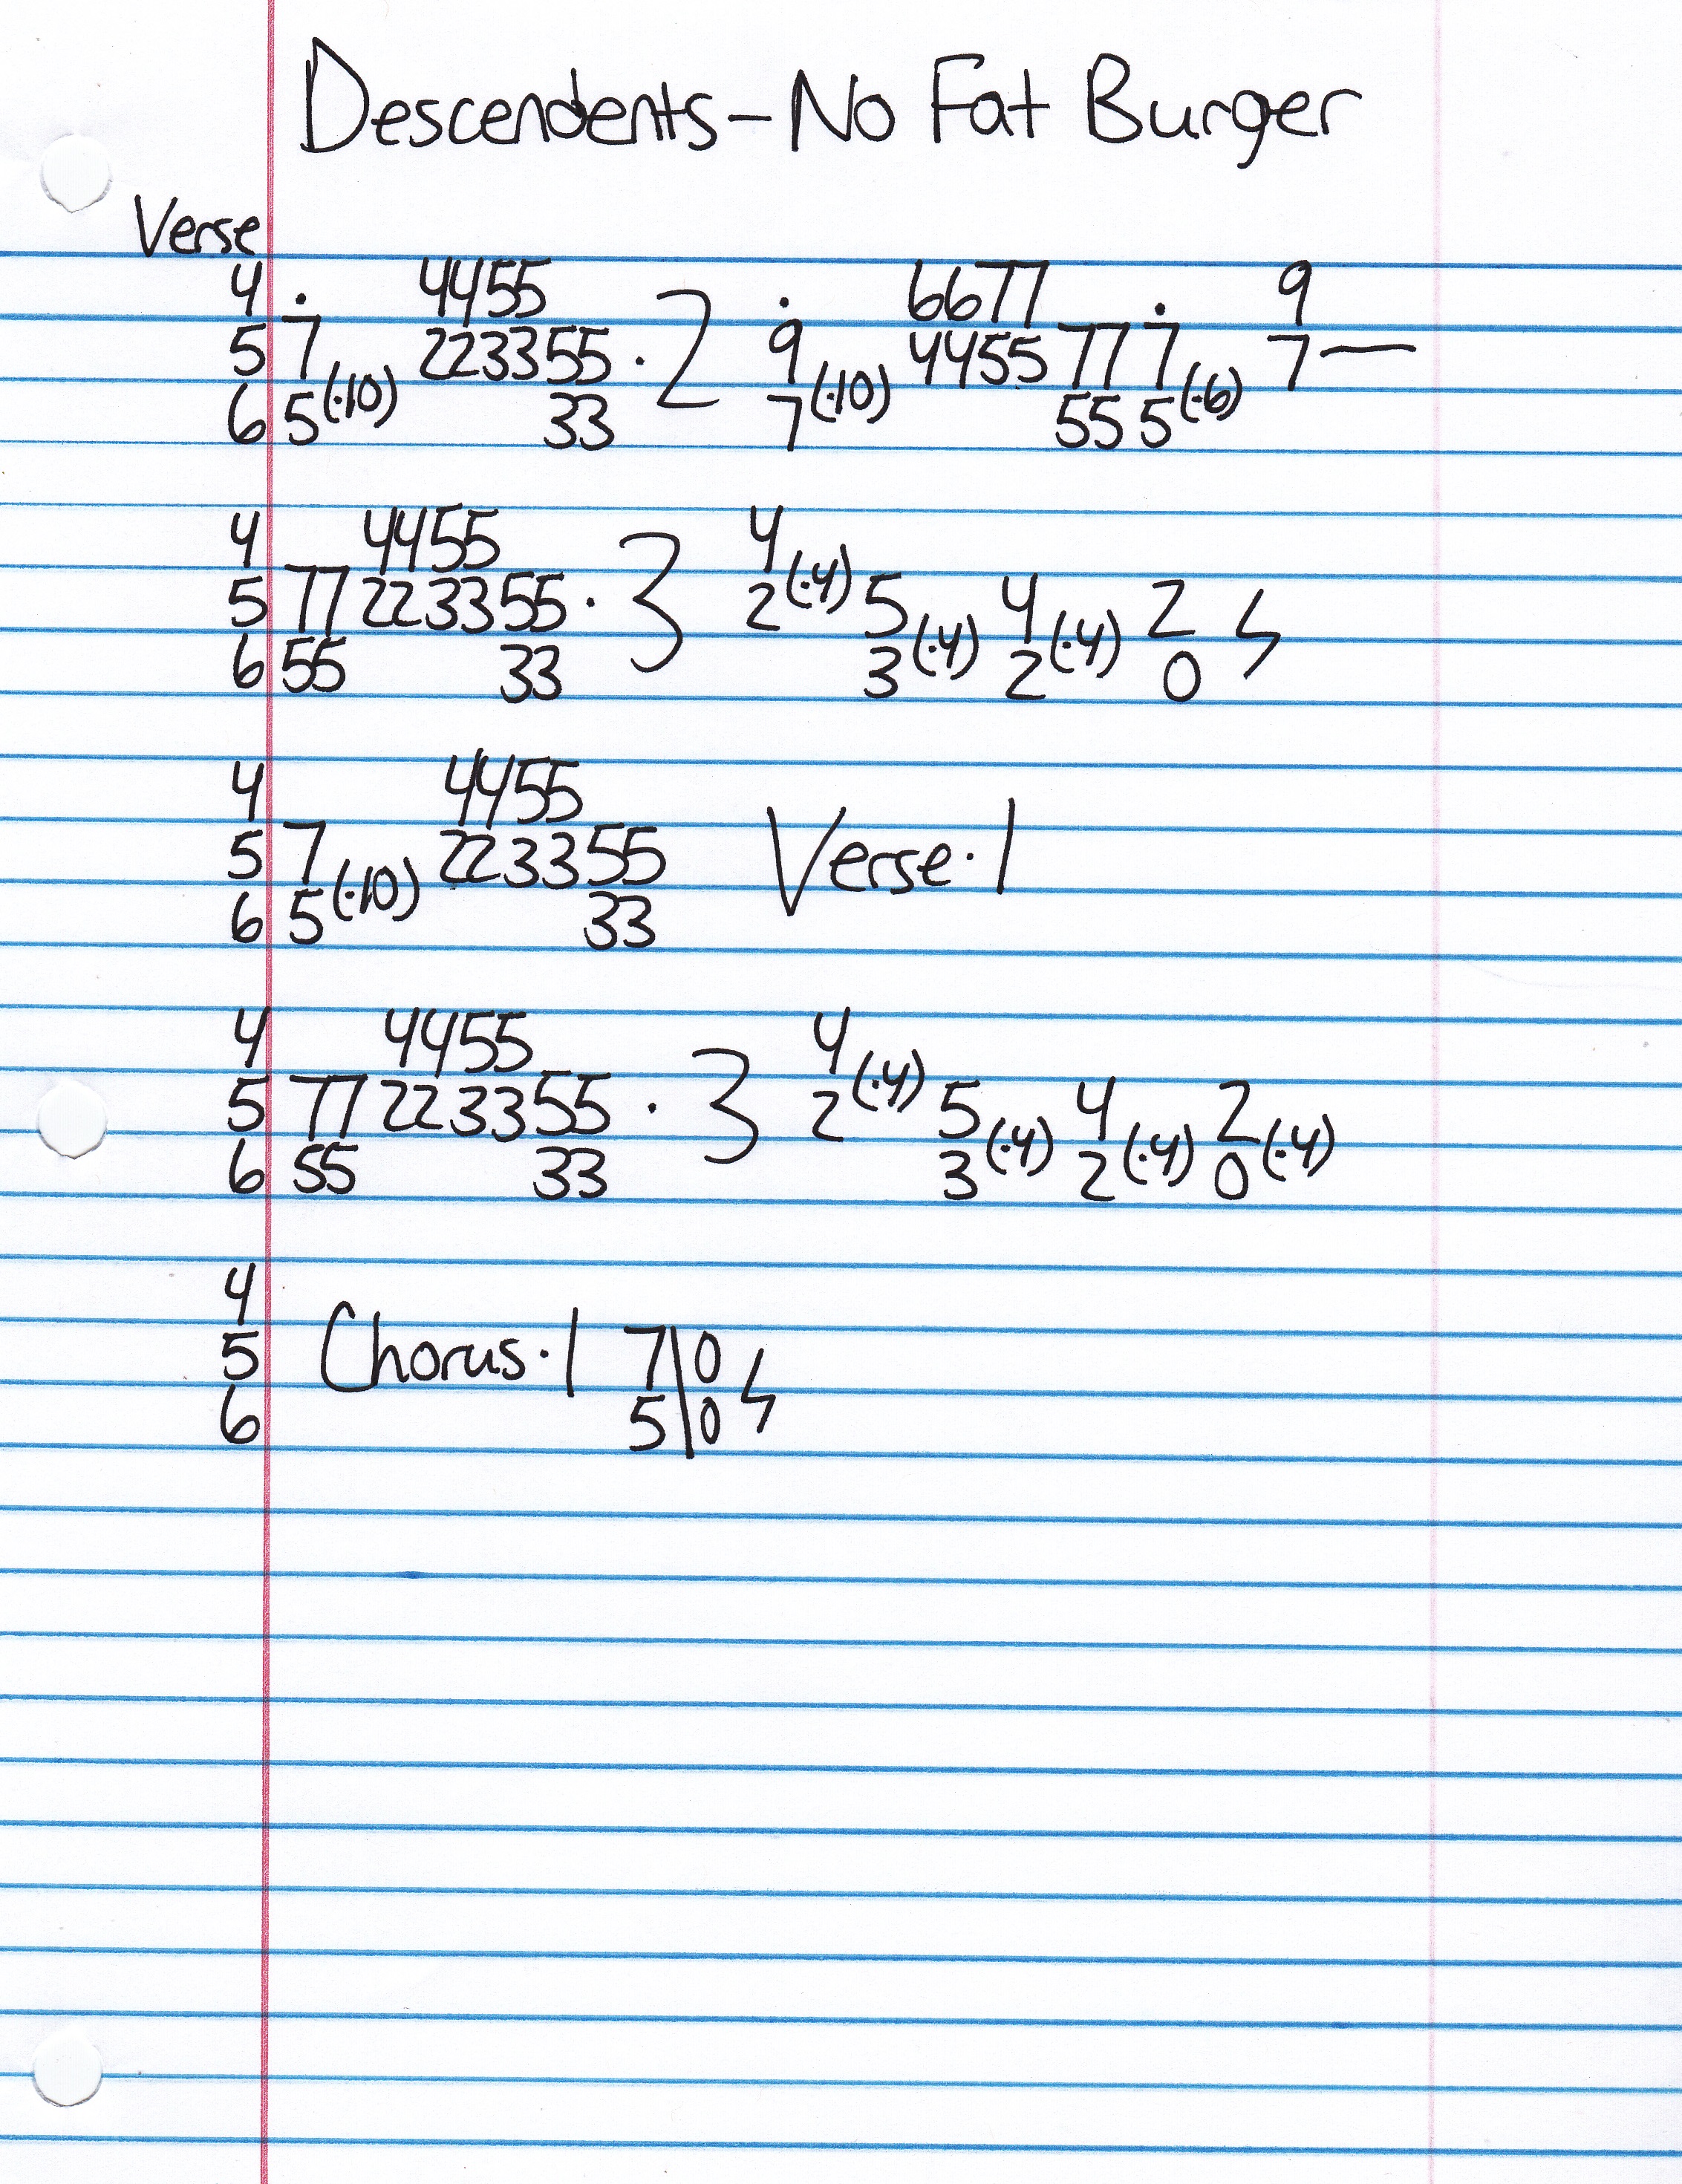 Descendents - No Fat Burger
Verse
4 . 4455 . 6677 . 9
5 7 223355 · 2 9 4455 77 7 7—
6 5(·10) 33 7(·10) 55 5(·6)
4 4455 4
5 77 223355 · 3 2(·4) 5 4 2 ϟ
6 55 33 3(·4) 2(·4) 0
4 4455
5 7 223355 Verse·1
6 5(·10) 33
4 4455 4
5 77 223355 · 3 2(·4) 5 4 2
6 55 33 3(·4) 2(·4) 0(·4)
4
5 Chorus·1 7\0 ϟ
6 5\0